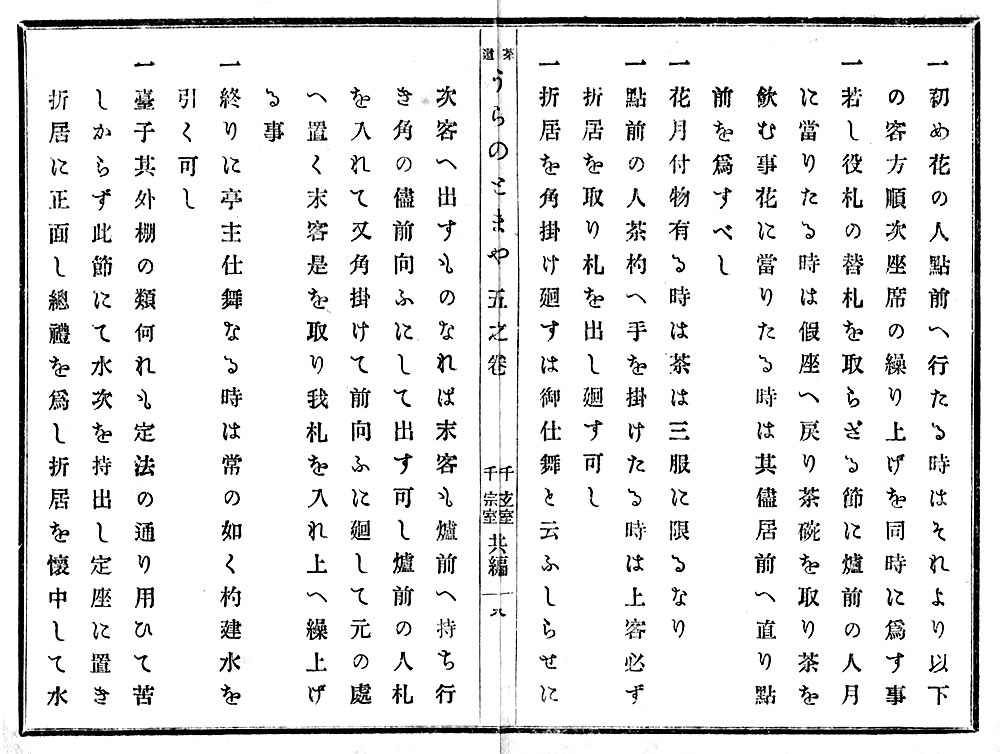 一初め花の人點前へ行たる時はそれより以下
の客方順次座席の繰り上げを同時に爲す事
一若し役札の替札を取らざる節に爐前の人月
に當りたる時は假座へ戻り茶碗を取り茶を
飮む事花に當りたる時は其儘居前へ直り點
前を爲すべし
一花月付物有る時は茶は三服に限るなり
一點前の人茶杓へ手を掛けたる時は上客必ず
折居を取り札を出し廻す可し
一折居を角掛け廻すは御仕舞と云ふしらせに
茶道うらのとまや五之卷
千玄室
千宗室
共編
一九
次客へ出すものなれば末客も爐前へ持ち行
き角の儘前向ふにして出す可し爐前の人札
を入れて又角掛けて前向ふに廻して元の處
へ置く末客是を取り我札を入れ上へ繰上げ
る事
一終りに亭主仕舞なる時は常の如く杓建水を
引く可し
一臺子其外棚の類何れも定法の通り用ひて苦
しからず此節にて水次を持出し定座に置き
折居に正面し總禮を爲し折居を懷中して水